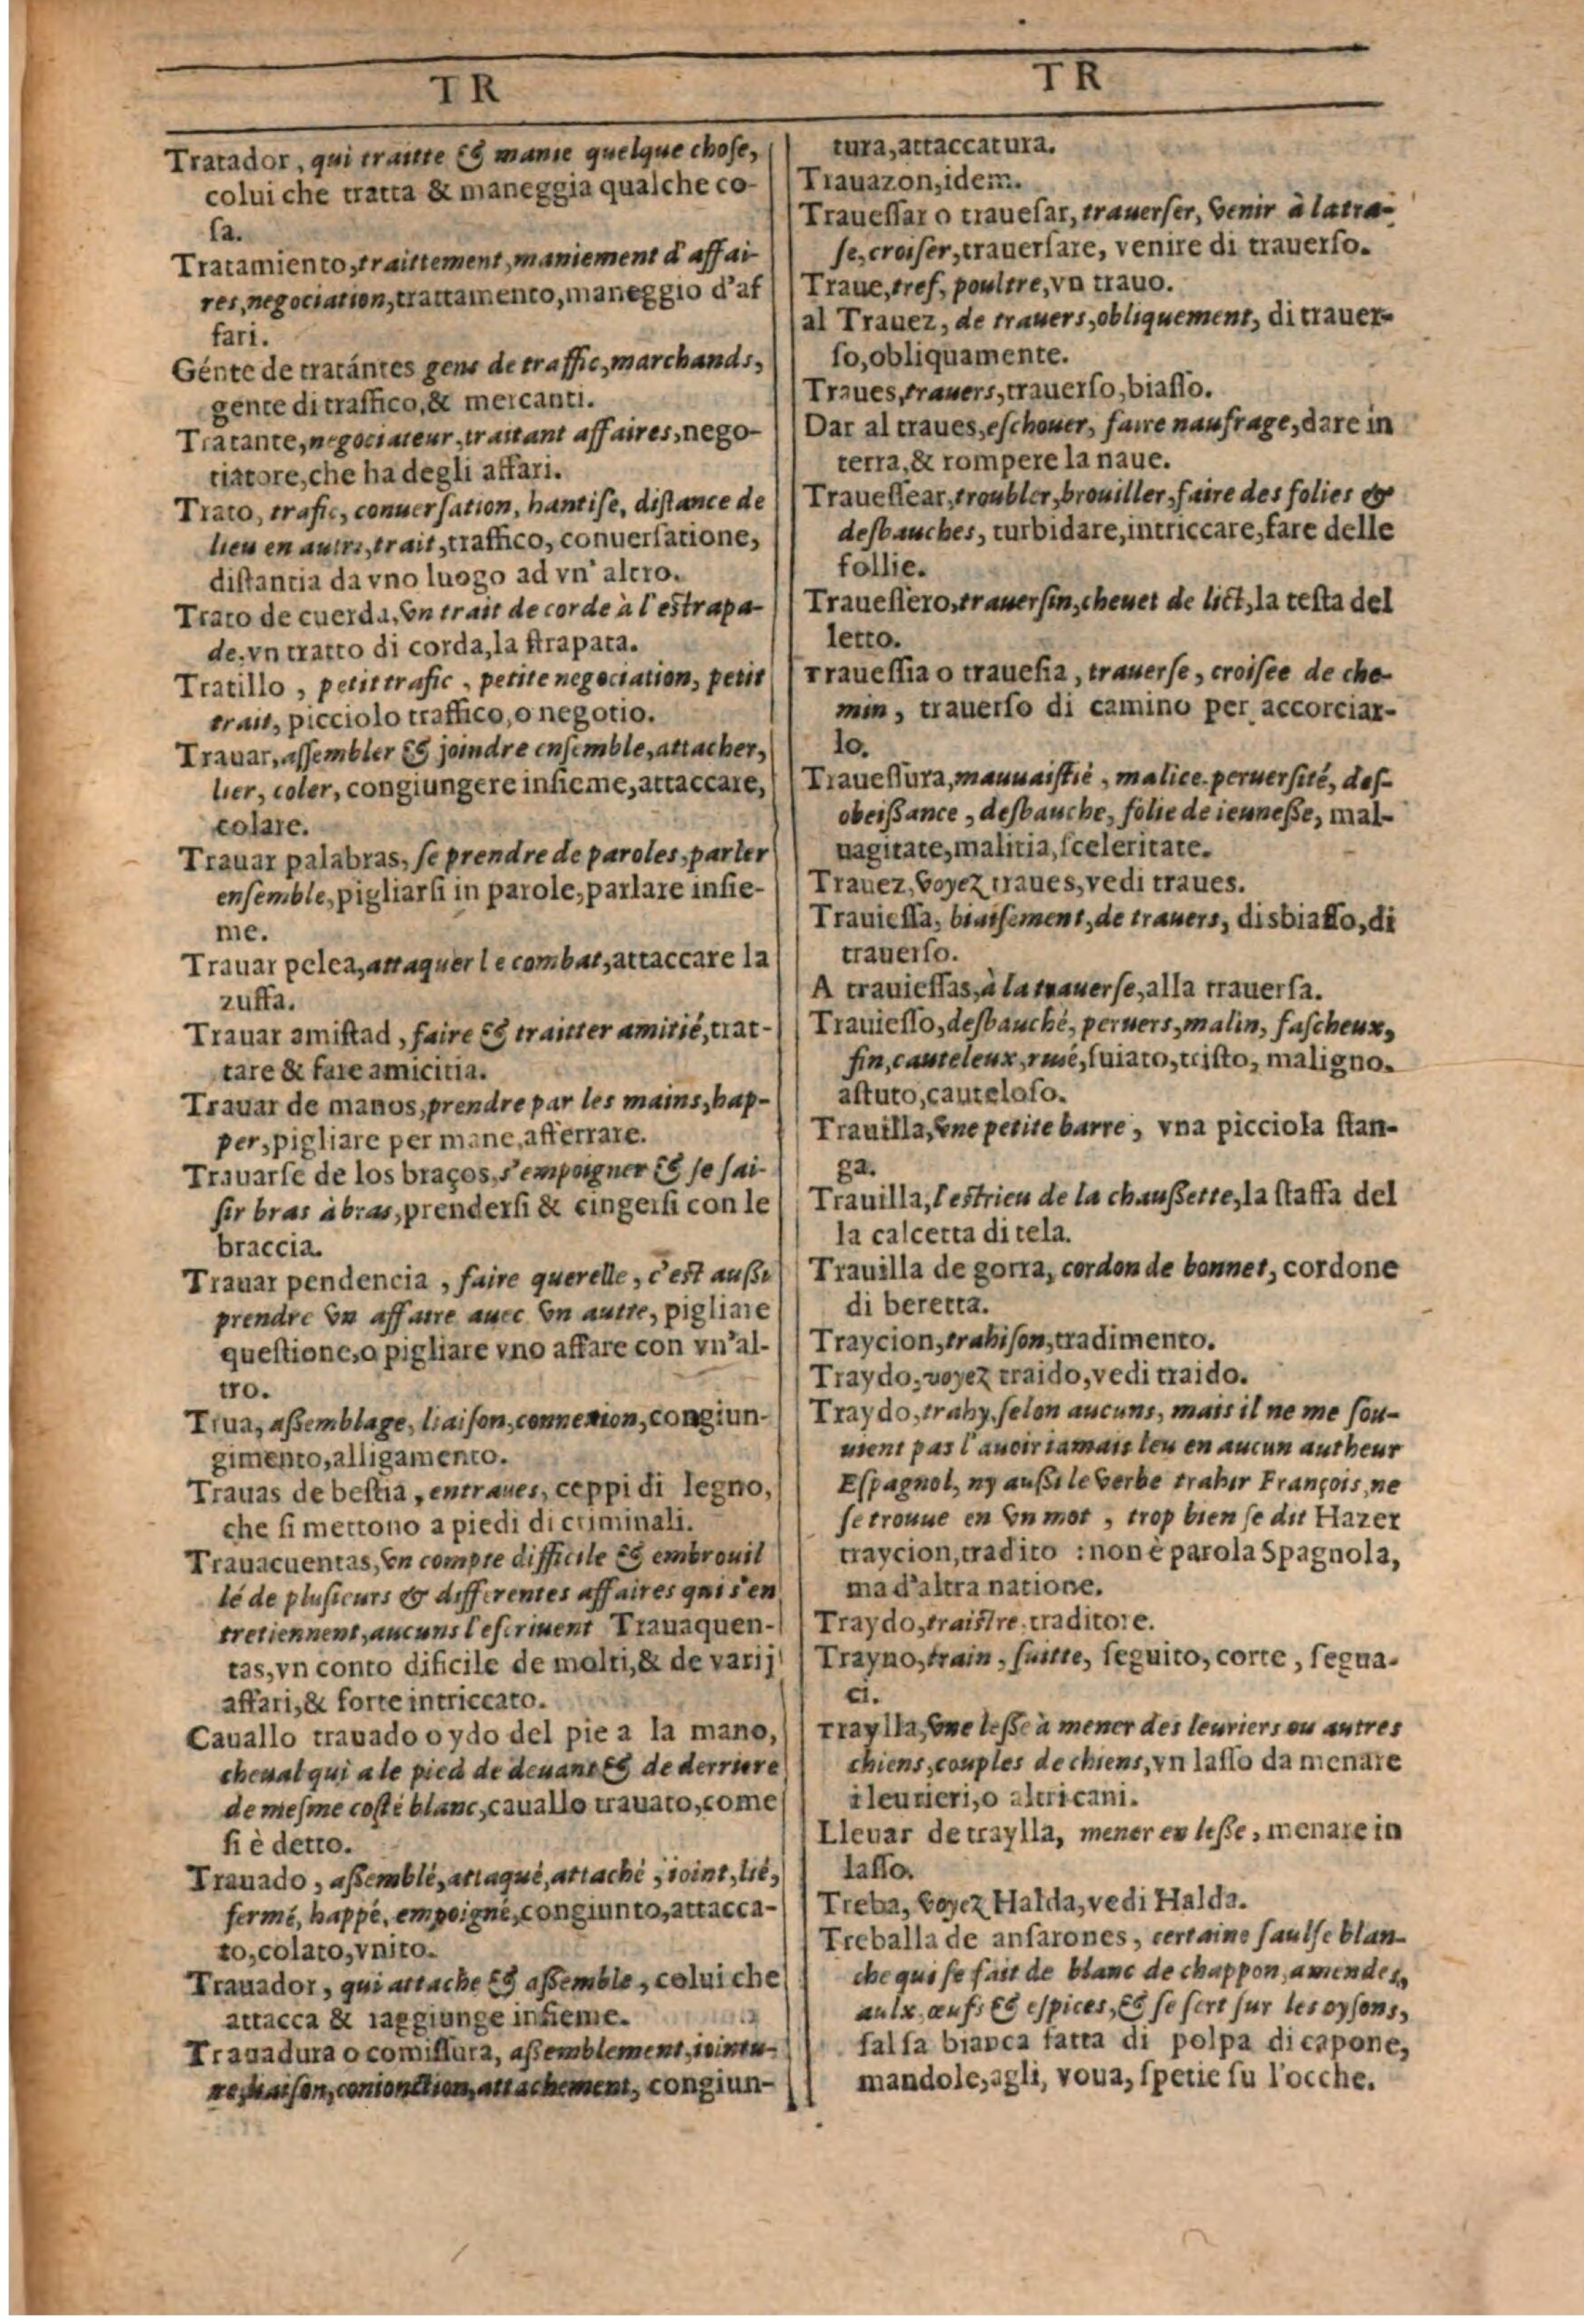 TR
Tratador, qui traitte & manie quelque chose,
colui che tratta & maneggia qualche co-
ſa.
Tratamiento, traittement, maniement d'affai-
res, negociation, trattamento, maneggio d'af
fari.
Génte de tratántes gens de traffic, marchands,
gente di traffico, & mercanti.
Tratante, negociateur, traitant affaires, nego-
tiatore, che ha degli affari.
Trato, trafic, conuerſation, hantiſe, diſtance de
lieu en autre, trait, traffico, conuerſatione,
diſtantia da vno luogo ad vn' altro.
Trato de cuerda, vn trait de corde à l'eſtrapa-
de, vn tratto di corda, la ſtrapata.
Tratillo, petit trafic, petite negociation, petit
trait, picciolo traffico, o negotio.
Trauar, aſſembler & joindre enſemble, attacher,
lier, coler, congiungere inſieme, attaccare,
colare.
Trauar palabras, ſe prendre de paroles, parler
enſemble, pigliarſi in parole, parlare inſie-
me.
Trauar pelea, attaquer le combat, attaccare la
zuffa.
Trauar amiſtad, faire & traitter amitié, trat-
tare & fare amicitia.
Trauar de manos, prendre par les mains, hap-
per, pigliare per mane, afferrare.
Trauarſe de los braços, s'empoigner & ſe ſai-
ſir bras à bras, prenderſi & cingerſi con le
braccia.
Trauar pendencia, faire querelle, c'eſt auſſi
prendre vn affaire auec vn autre, pigliare
queſtione, o pigliare vno affare con vn'al-
tro.
Trua, aſſemblage, liaiſon, connexion, congiun-
gimento, alligamento.
Trauas de beſtia, entraues, ceppi di legno,
che ſi mettono a piedi di criminali.
Trauacuentas, vn compte difficile & embrouil
lé de pluſieurs & differentes affaires qui s'en
tretiennent, aucuns l'eſcriuent Trauaquen-
tas, vn conto dificile de molti, & de varij
affari, & forte intriccato.
Cauallo trauado o ydo del pie a la mano,
cheual qui a le pied de deuant & de derriere
de meſme coſté blanc, cauallo trauato, come
ſi è detto.
Trauado, aſſemblé, attaqué, attaché, ioint, lié,
fermé, happé, empoigné, congiunto, attacca-
to, colato, vnito.
Trauador, qui attache & aſſemble, colui che
attacca & raggiunge inſieme.
Trauadura o comiſſura, aſſemblement, iointu-
re, liaiſon, conionction, attachement, congiun-
TR
tura, attaccatura.
Trauazon, idem.
Traueſſar o traueſar, trauerſer, venir à la tra-
ſe, croiſer, trauerſare, venire di trauerſo.
Traue, tref, poultre, vn trauo.
al Trauez, de trauers, obliquement, di trauer-
ſo, obliquamente.
Traues, trauers, trauerſo, biaſſo.
Dar al traues, eſchouer, faire naufrage, dare in
terra, & rompere la naue.
Traueſſear, troubler, brouiller, faire des folies &
deſbauches, turbidare, intriccare, fare delle
follie.
Traueſſero, trauerſin, cheuet de lict, la teſta del
letto.
Traueſſia o traueſia, trauerſe, croiſee de che-
min, trauerſo di camino per accorciar-
lo.
Traueſſura, mauuaiſtié, malice, peruerſité, deſ-
obeiſſance, deſbauche, folie de ieuneſſe, mal-
uagitate, malitia, ſceleritate.
Trauez, voyez traues, vedi traues.
Trauieſſa, biaiſement, de trauers, disbiaſſo, di
trauerſo.
A trauieſſas, à la trauerſe, alla trauerſa.
Trauieſſo, deſbauché, peruers, malin, faſcheux,
fin, cauteleux, ruſé, ſuiato, triſto, maligno,
aſtuto, cauteloſo.
Trauilla, vne petite barre, vna picciola ſtan-
ga.
Trauilla, l'eſtrieu de la chauſſette, la ſtaffa del
la calcetta di tela.
Trauilla de gorra, cordon de bonnet, cordone
di beretta.
Traycion, trahiſon, tradimento.
Traydo, voyez traido, vedi traido.
Traydo, trahy, ſelon aucuns, mais il ne me ſou-
uient pas l'auoir iamais leu en aucun autheur
Eſpagnol, ny auſſi le verbe trahir François, ne
ſe trouue en vn mot, trop bien ſe dit Hazer
traycion, tradito : non è parola Spagnola,
ma d'altra natione.
Traydo, traiſtre, traditore.
Trayno, train, ſuitte, ſeguito, corte, ſegua-
ci.
Traylla, vne leſſe à mener des leuriers ou autres
chiens, couples de chiens, vn laſſo da menare
i leurieri, o altri cani.
Lleuar de traylla, mener en leſſe, menare in
laſſo.
Treba, voyez Halda, vedi Halda.
Treballa de anſarones, certaine ſaulſe blan-
che qui ſe fait de blanc de chappon, amendes,
aulx, œufs & eſpices, & ſe ſert ſur les oyſons,
ſalſa bianca fatta di polpa di capone,
mandole, agli, voua, ſpetie ſu l'ocche.